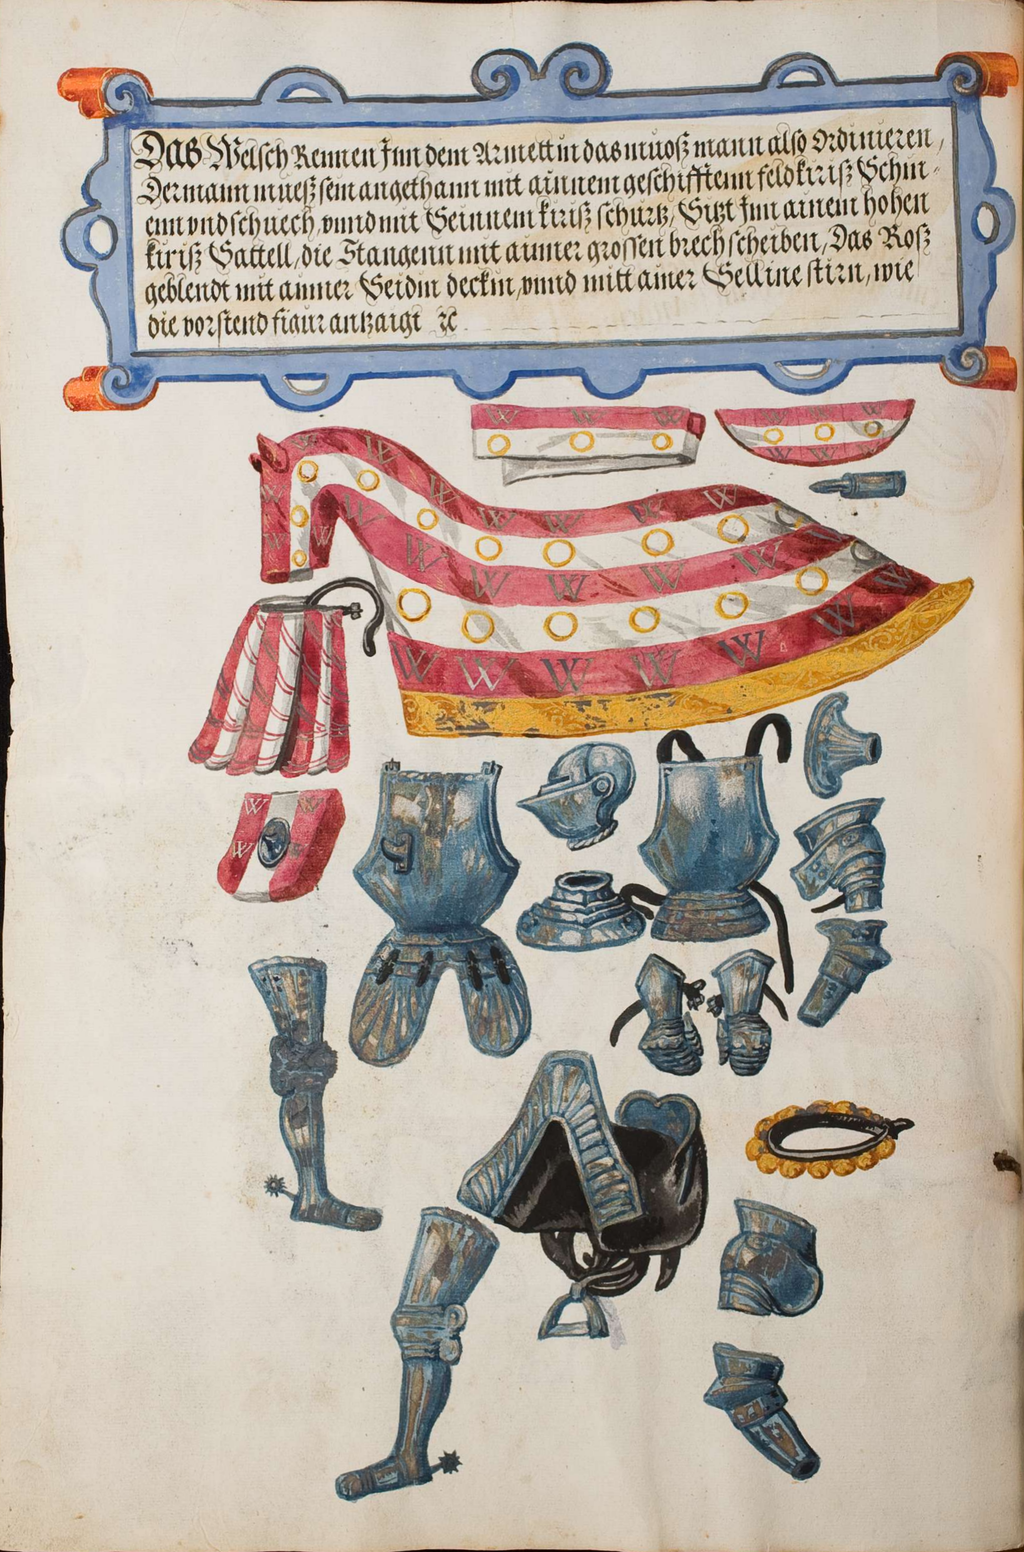 Das Welsch Rennen Inn dem Armettin das muosz mann also Ordinieren,
Der mann muesz sein angethann mit ainnem geschifftenn feldkirisz Schin-
enn vnd schuech, vnnd mit Seinnem kirisz schurtz, Sitzt Inn ainem hohen
kirisz Sattell, die Stangenn mit ainner grossen brech scheiben, Das Rosz
geblendt mit ainner Seidin deckin, vnnd mitt ainer Selline stirn, wie
die vorstend figur antzaigt ꝛc
W W W
W W W
W W W
W W W W W W
W W
W W W W W W
W W W W W W W
W W
W